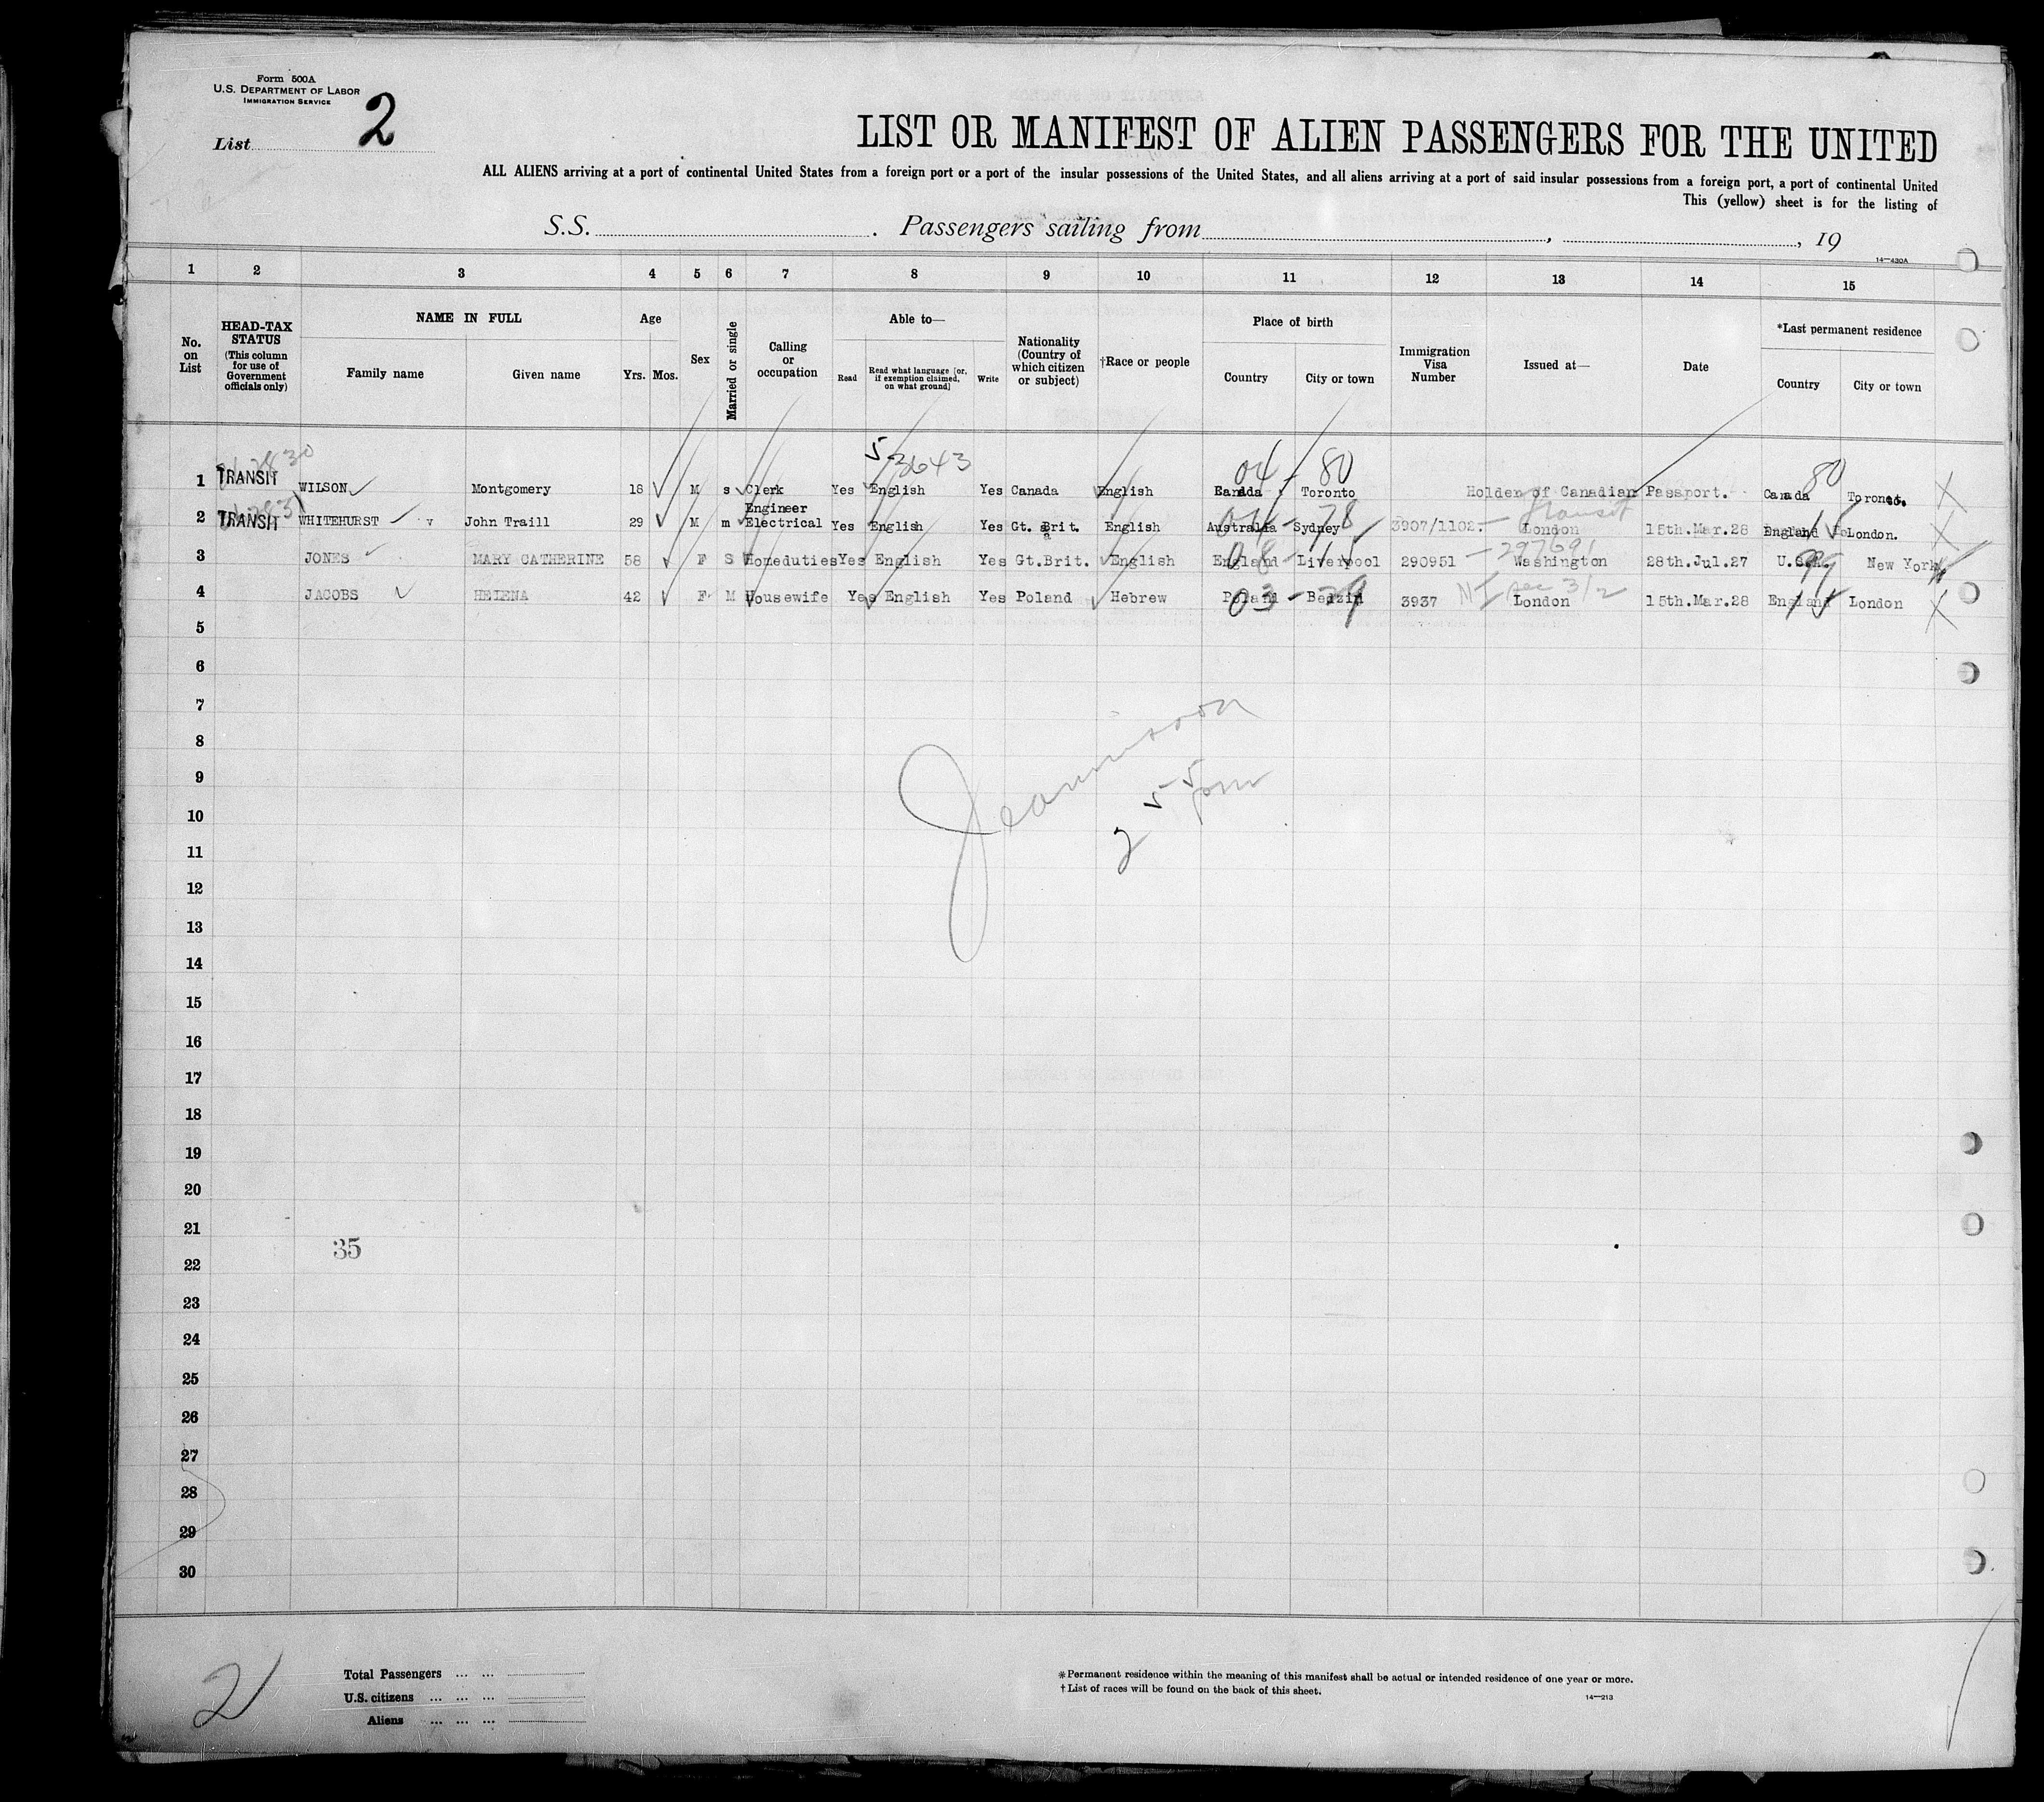 Form 500A
U.S. DEPARTMENT OF LABOR
IMMIGRATION SERVICE
List 2
LIST OR MANIFEST OF ALIEN PASSENGERS FOR THE UNITED
ALL ALIENS arriving at a port of continental United States from a foreign port or a port of the insular possessions of the United States, and all aliens arriving at a port of said insular possessions from a foreign port, a port of continental United
This (yellow) sheet is for the listing of
S.S. . Passengers sailing from , , 19
14—430A
1 2 3 4 5 6 7 8 9 10 11 12 13 14 15
No. on List
HEAD-TAX STATUS (This column for use of Government officials only)
NAME IN FULL
Family name Given name
Age
Yrs. Mos.
Sex
Married or single
Calling or occupation
Able to—
Read Read what language [or, if exemption claimed, on what ground] Write
Nationality (Country of which citizen or subject)
†Race or people
Place of birth
Country City or town
Immigration Visa Number
Issued at—
Date
*Last permanent residence
Country City or town
5-3643
04 - 80 80
1 TRANSIT WILSON Montgomery 18 M s Clerk Yes English Yes Canada English Canada Toronto Holder of Canadian Passport. Canada Toronto.
2 TRANSIT WHITEHURST John Traill 29 M m Engineer Electrical Yes English Yes Gt. Brit. English Australia Sydney 3907/1102. London Transit 15th.Mar.28 England London.
3 JONES MARY CATHERINE 58 F S Homeduties Yes English Yes Gt.Brit. English England Liverpool 290951 - 297691 Washington 28th.Jul.27 U.S.A. 99 New York
4 JACOBS HELENA 42 F M Housewife Yes English Yes Poland Hebrew Poland Bedzin 03 - 29 3937 London sec 3/2 15th.Mar.28 England London
5
6
7
8
9
10
11
12
13
14
15
16
17
18
19
20
21
22
23
24
25
26
27
28
29
30
2 55 pm
35
2
Total Passengers ... ...
U.S. citizens ... ... ...
Aliens ... ... ...
*Permanent residence within the meaning of this manifest shall be actual or intended residence of one year or more.
†List of races will be found on the back of this sheet.
14—213